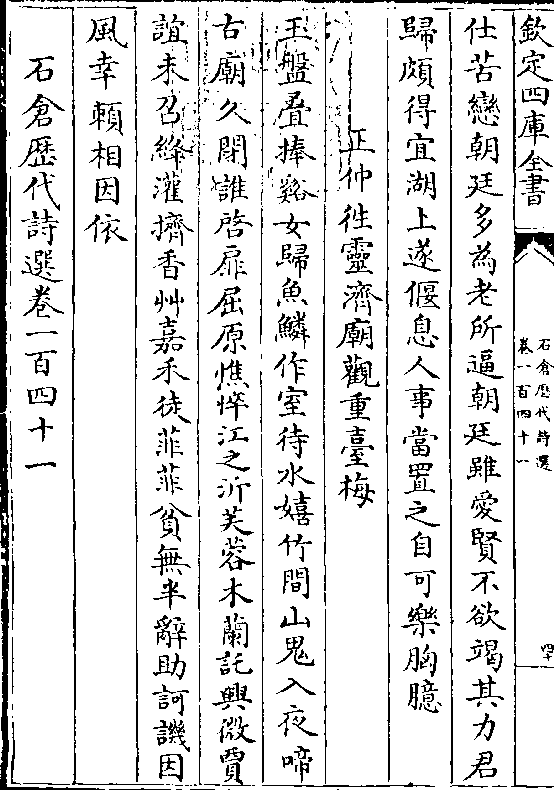 欽定四庫全書
石倉歷代詩選
卷一百四十一
四十
仕苦戀朝廷多為老所逼朝廷雖愛賢不欲竭其力君
歸頗得宜湖上遂偃息人事當置之自可樂胸臆
正仲徃靈濟廟觀重臺梅
玉盤疊捧谿女歸魚鱗作室待水嬉竹間山鬼入夜啼
古廟久閉誰啓扉屈原憔悴江之沂芙蓉木蘭託興微賈
誼未召絳灌擠香艸嘉禾徒菲菲貧無半辭助訶譏因
風幸賴相因依
石倉歷代詩選卷一百四十一